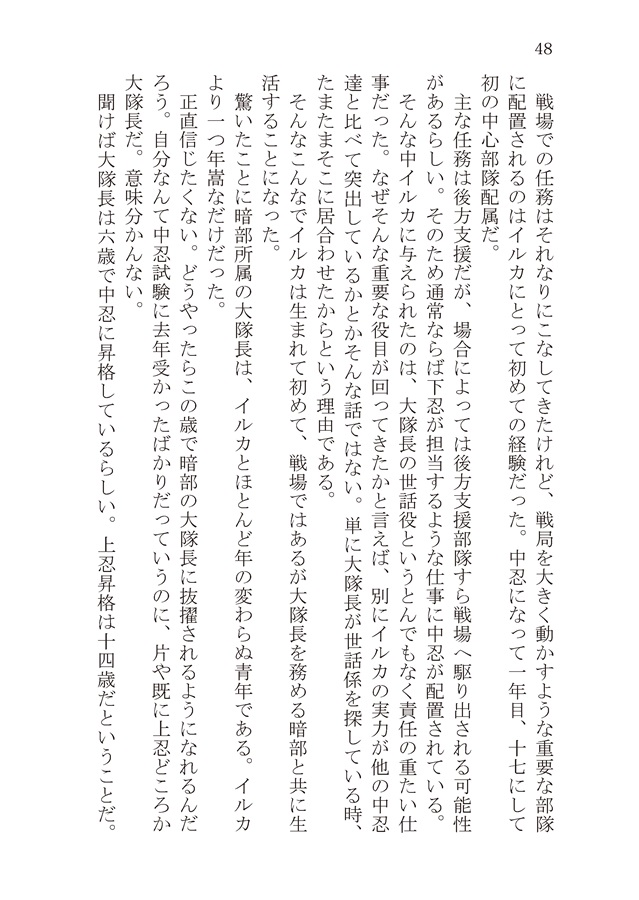 48
　戦場での任務はそれなりにこなしてきたけれど、戦局を大きく動かすような重要な部隊
に配置されるのはイルカにとって初めての経験だった。中忍になって一年目、十七にして
初の中心部隊配属だ。
　主な任務は後方支援だが、場合によっては後方支援部隊すら戦場へ駆り出される可能性
があるらしい。そのため通常ならば下忍が担当するような仕事に中忍が配置されている。
　そんな中イルカに与えられたのは、大隊長の世話役というとんでもなく責任の重たい仕
事だった。なぜそんな重要な役目が回ってきたかと言えば、別にイルカの実力が他の中忍
達と比べて突出しているかとかそんな話ではない。単に大隊長が世話係を探している時、
たまたまそこに居合わせたからという理由である。
　そんなこんなでイルカは生まれて初めて、戦場ではあるが大隊長を務める暗部と共に生
活することになった。
　驚いたことに暗部所属の大隊長は、イルカとほとんど年の変わらぬ青年である。イルカ
より一つ年嵩なだけだった。
　正直信じたくない。どうやったらこの歳で暗部の大隊長に抜擢されるようになれるんだ
ろう。自分なんて中忍試験に去年受かったばかりだっていうのに、片や既に上忍どころか
大隊長だ。意味分かんない。
　聞けば大隊長は六歳で中忍に昇格しているらしい。上忍昇格は十四歳だということだ。